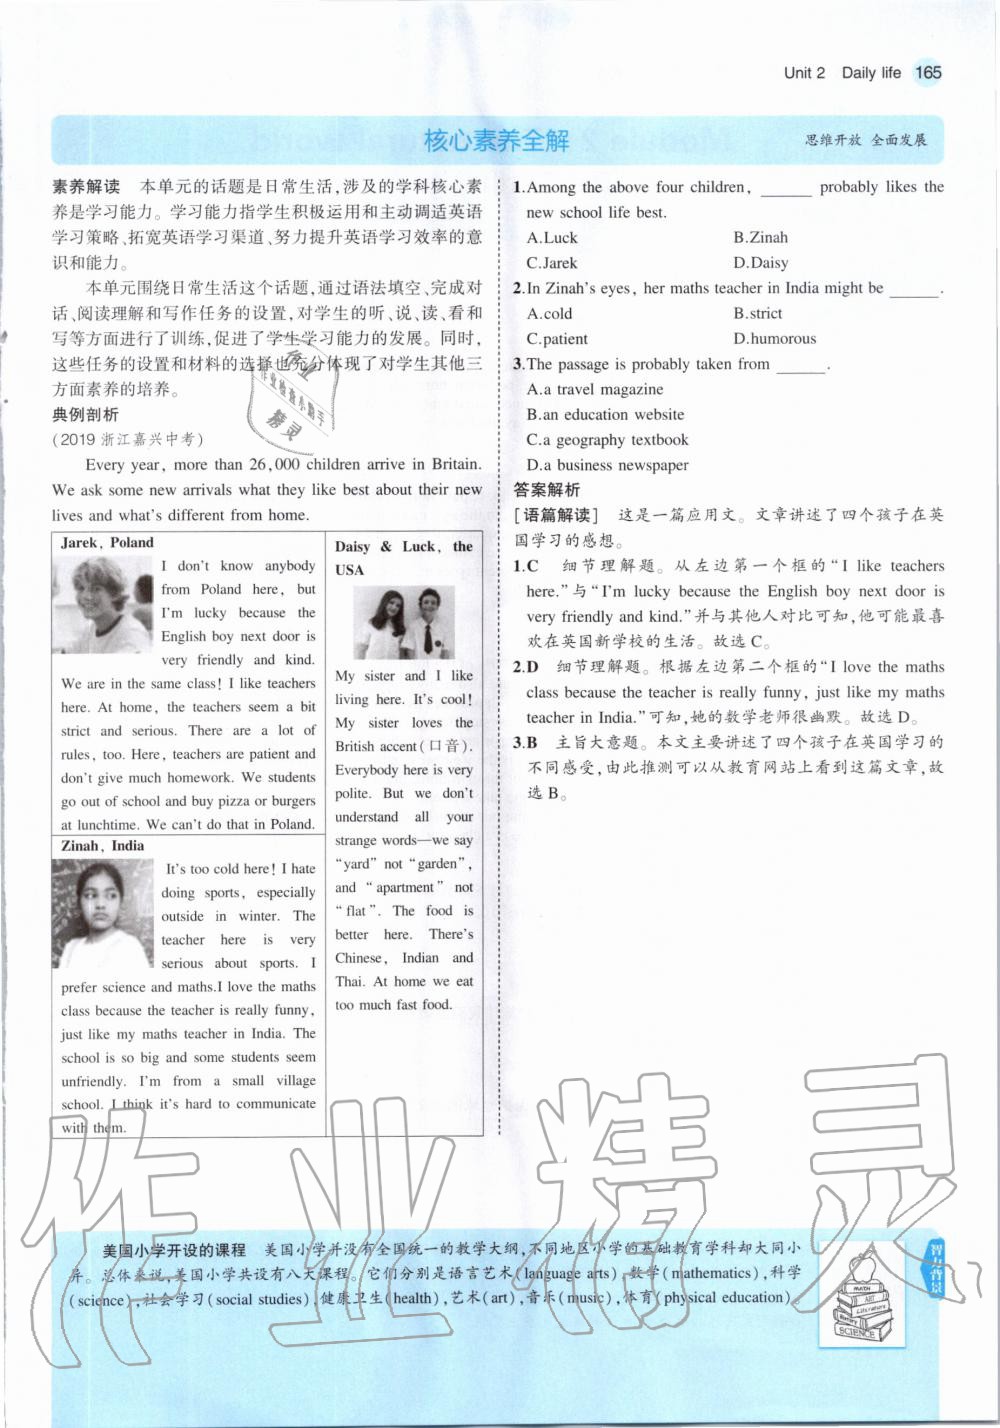 Unit 2 Daily life 165
核心素养全解
思维开放 全面发展
素养解读 本单元的话题是日常生活,涉及的学科核心素
养是学习能力。学习能力指学生积极运用和主动调适英语
学习策略、拓宽英语学习渠道、努力提升英语学习效率的意
识和能力。
本单元围绕日常生活这个话题,通过语法填空、完成对
话、阅读理解和写作任务的设置,对学生的听、说、读、看和
写等方面进行了训练,促进了学生学习能力的发展。同时,
这些任务的设置和材料的选择也充分体现了对学生其他三
方面素养的培养。
典例剖析
(2019 浙江嘉兴中考)
Every year, more than 26,000 children arrive in Britain.
We ask some new arrivals what they like best about their new
lives and what's different from home.
Jarek, Poland
I don't know anybody
from Poland here, but
I'm lucky because the
English boy next door is
very friendly and kind.
We are in the same class! I like teachers
here. At home, the teachers seem a bit
strict and serious. There are a lot of
rules, too. Here, teachers are patient and
don't give much homework. We students
go out of school and buy pizza or burgers
at lunchtime. We can't do that in Poland.
Zinah, India
It's too cold here! I hate
doing sports, especially
outside in winter. The
teacher here is very
serious about sports. I
prefer science and maths.I love the maths
class because the teacher is really funny,
just like my maths teacher in India. The
school is so big and some students seem
unfriendly. I'm from a small village
school. I think it's hard to communicate
with them.
Daisy & Luck, the
USA
My sister and I like
living here. It's cool!
My sister loves the
British accent(口音).
Everybody here is very
polite. But we don't
understand all your
strange words—we say
"yard" not "garden",
and "apartment" not
"flat". The food is
better here. There's
Chinese, Indian and
Thai. At home we eat
too much fast food.
1.Among the above four children, ______ probably likes the
new school life best.
A.Luck B.Zinah
C.Jarek D.Daisy
2.In Zinah's eyes, her maths teacher in India might be ______.
A.cold B.strict
C.patient D.humorous
3.The passage is probably taken from ______.
A.a travel magazine
B.an education website
C.a geography textbook
D.a business newspaper
答案解析
[语篇解读] 这是一篇应用文。文章讲述了四个孩子在英
国学习的感想。
1.C 细节理解题。从左边第一个框的"I like teachers
here."与"I'm lucky because the English boy next door is
very friendly and kind."并与其他人对比可知,他可能最喜
欢在英国新学校的生活。故选C。
2.D 细节理解题。根据左边第二个框的"I love the maths
class because the teacher is really funny, just like my maths
teacher in India."可知,她的数学老师很幽默。故选D。
3.B 主旨大意题。本文主要讲述了四个孩子在英国学习的
不同感受,由此推测可以从教育网站上看到这篇文章,故
选B。
作业
作业检查小助手
精灵
作业精灵
美国小学开设的课程 美国小学并没有全国统一的教学大纲,不同地区小学的基础教育学科却大同小
异。总体来说,美国小学共设有八大课程。它们分别是语言艺术(language arts),数学(mathematics),科学
(science),社会学习(social studies),健康卫生(health),艺术(art),音乐(music),体育(physical education)。
智力背景
MATH
ART
Literature
History
SCIENCE